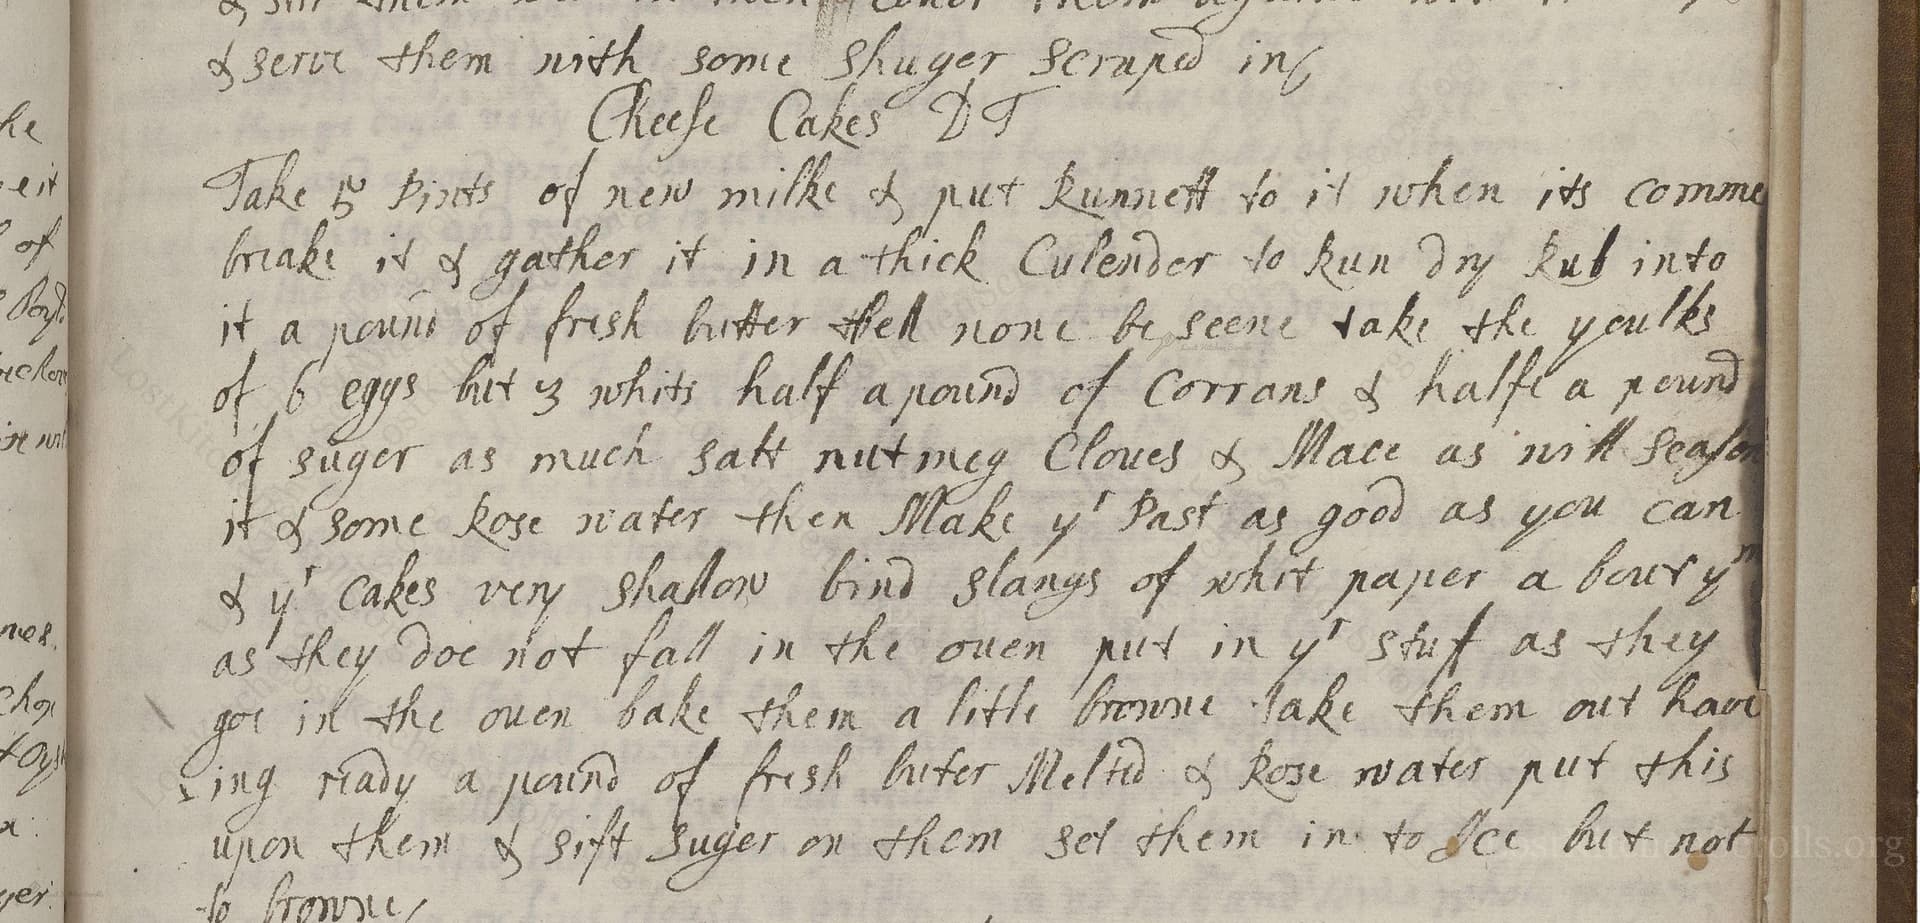 & serve them with some shuger scraped in
Cheese Cakes D T
Take 5 Pints of new milke & put Runnett to it when its comme
breake it & gather it in a thick Culender to Run dry Rub into
it a pound of fresh butter tell none be seene take the youlks
of 6 eggs but 3 whits half a pound of Corrans & halfe a pound
of suger as much salt nutmeg Cloves & Mace as will season
it & some Rose water then Make yr Past as good as you can
& yr Cakes very shallow bind slangs of whit paper a bout ym
as they doe not fall in the ouen put in yr stuf as they
goe in the ouen bake them a litle browne take them out have
ing ready a pound of fresh buter Melted & Rose water put this
upon them & sift suger on them set them in to Ice but not
to browne
he
eit
of
Boyld
nes
chop
yer